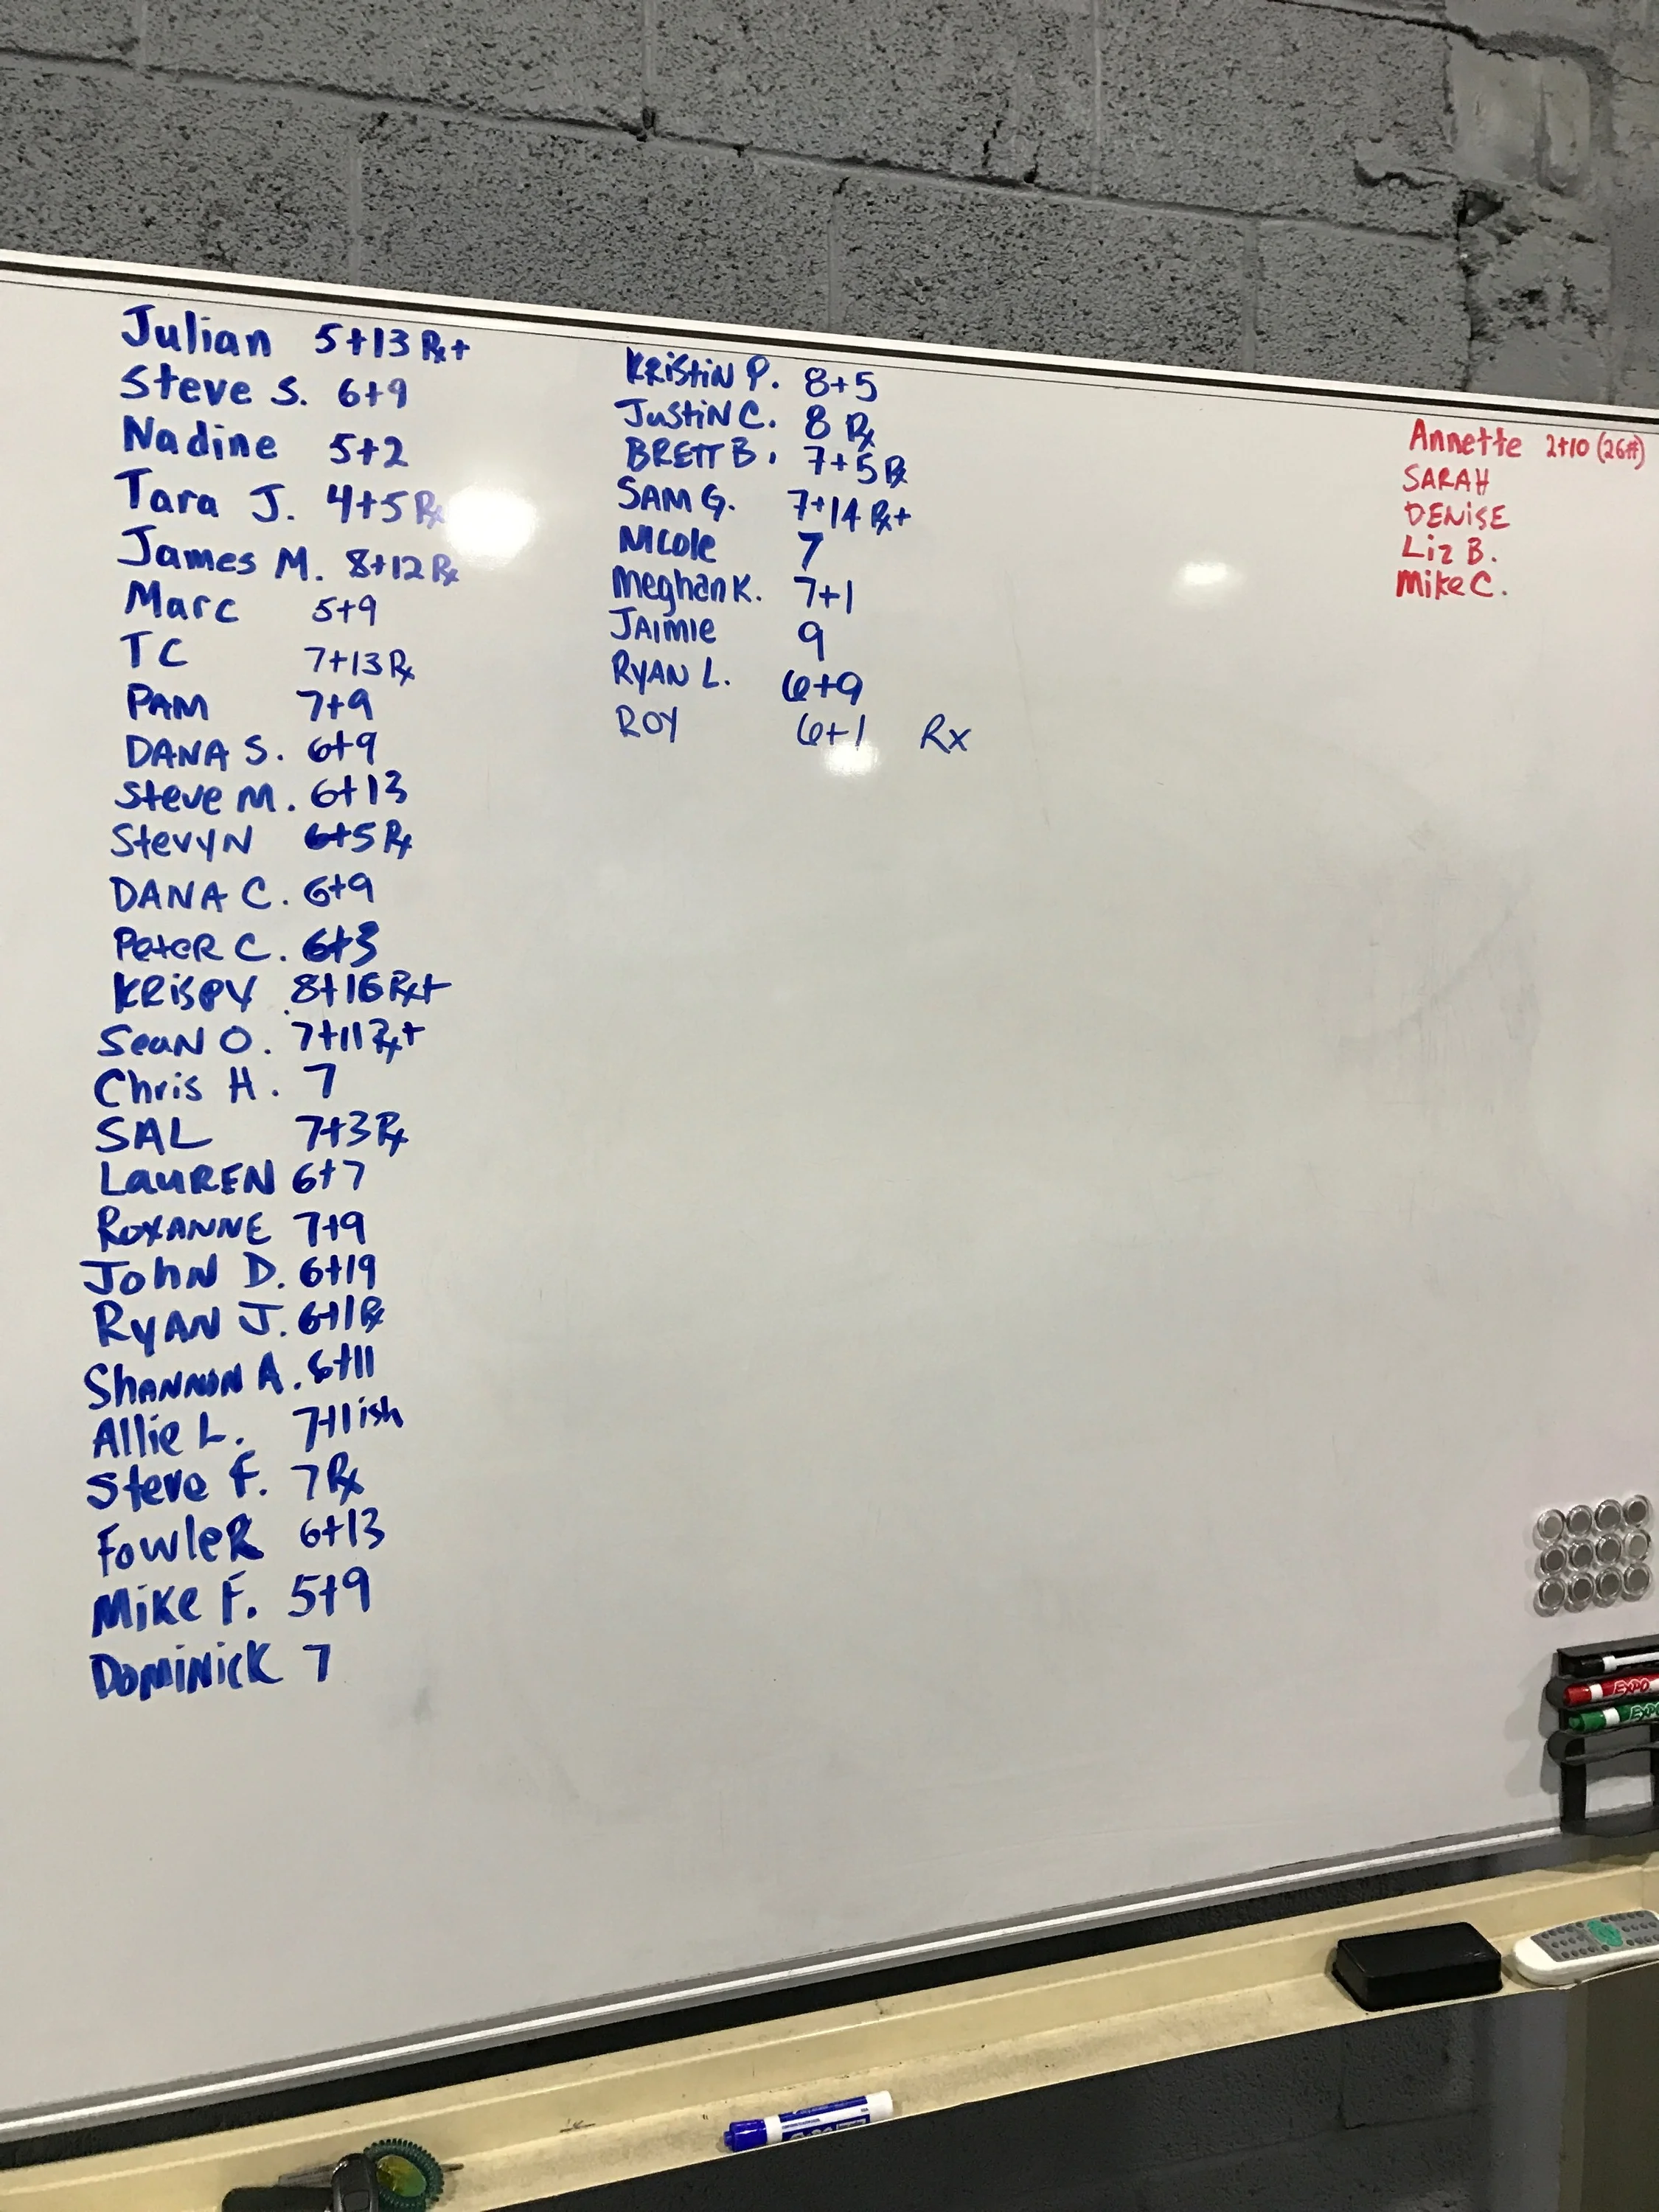 Julian 5+13 Rx+
Steve S. 6+9
Nadine 5+2
Tara J. 4+5 Rx
James M. 8+12 Rx
Marc 5+9
TC 7+13 Rx
PAM 7+9
DANA S. 6+9
Steve M. 6+13
StevyN 6+5 Rx
DANA C. 6+9
PeteR C. 6+3
KRiSPY 8+16 Rx+
SeaN O. 7+11 Rx+
Chris H. 7
SAL 7+3 Rx
LauREN 6+7
ROXANNE 7+9
JohN D. 6+19
RyAN J. 6+1 Rx
ShANNON A. 6+11
Allie L. 7+1ish
Steve F. 7 Rx
FowleR 6+13
Mike F. 5+9
DOMiNicK 7
KRiStiN P. 8+5
JuStiN C. 8 Rx
BRETT B. 7+5 Rx
SAM G. 7+14 Rx+
NIcole 7
Meghan K. 7+1
JAIMIE 9
RYAN L. 6+9
ROY 6+1 Rx
Annette 2+10 (26#)
SARAH
DENiSE
Liz B.
Mike C.
EXPO